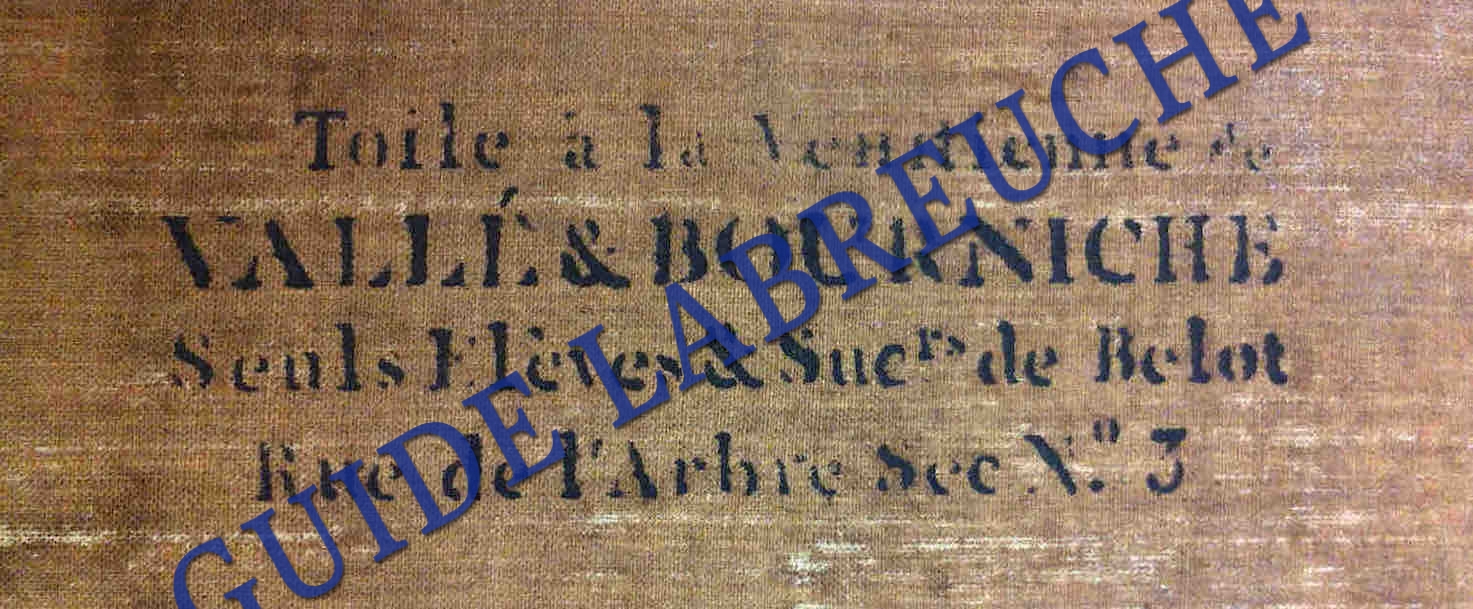 Toile à la Venitienne de
VALLÉ & BOURNICHE
Seuls Elèves & Sucrs de Belot
Rue de l'Arbre Sec N.º 3
GUIDE LABREUCHE